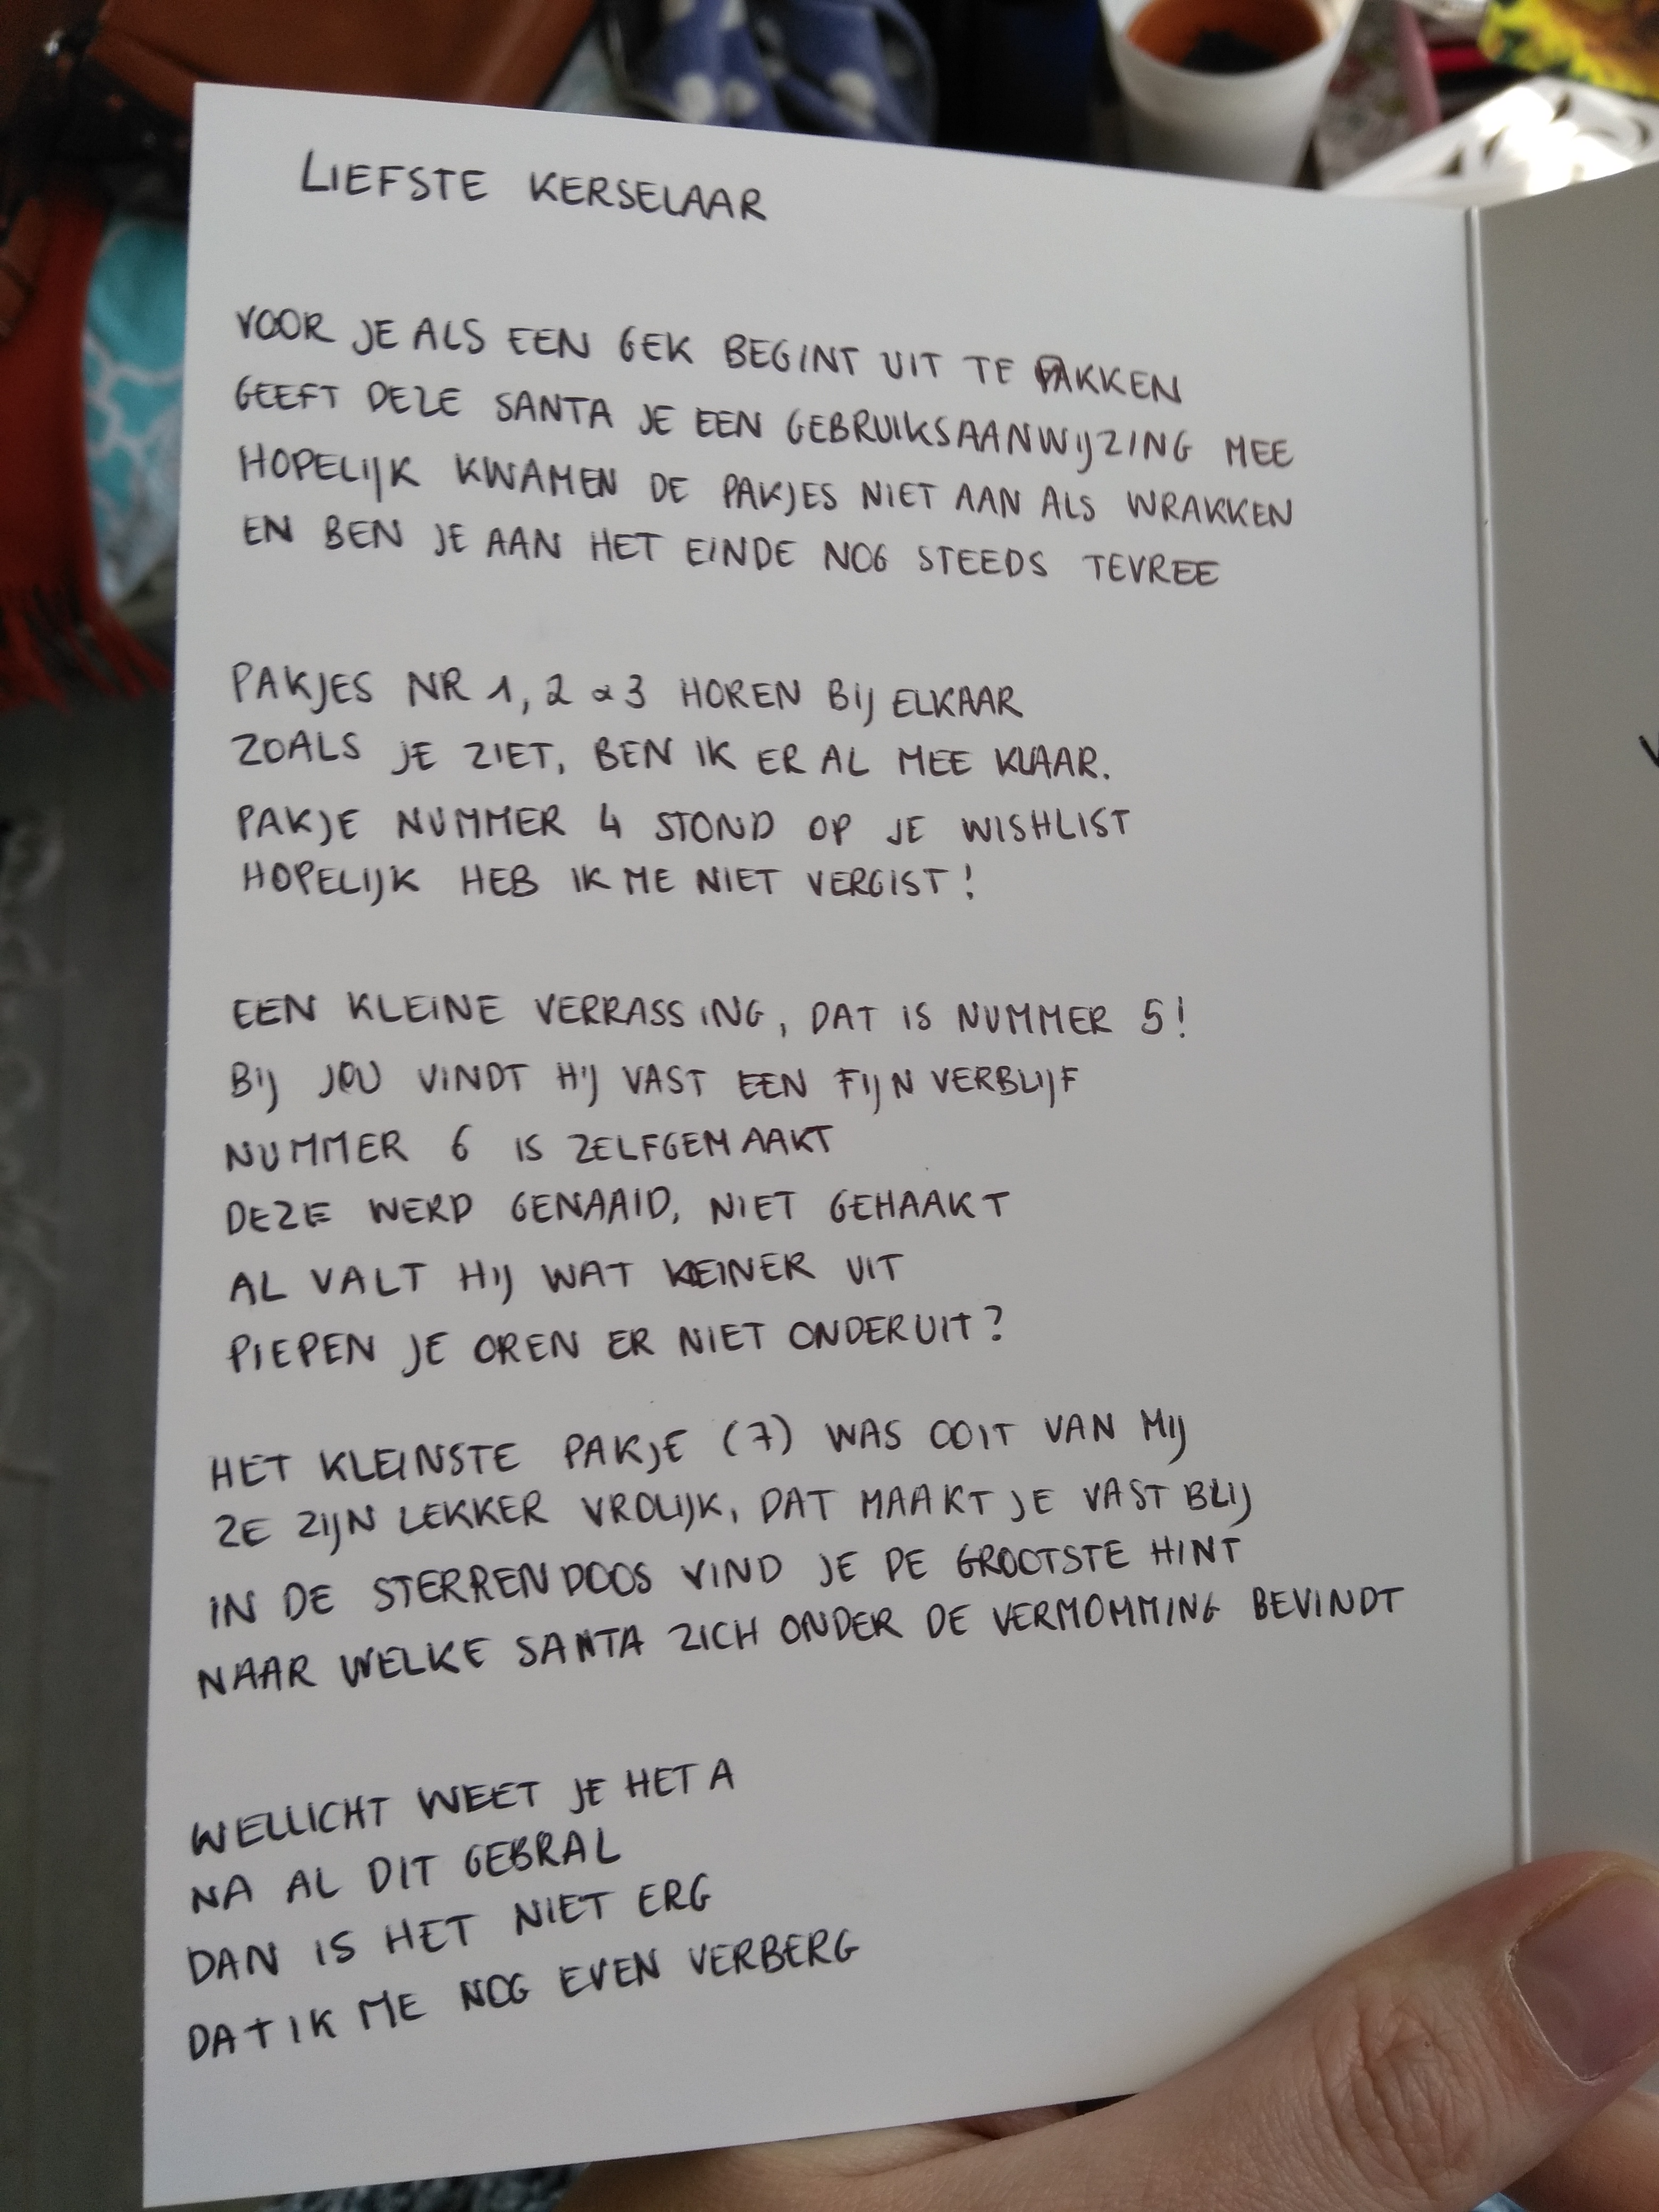 LIEFSTE KERSELAAR
VOOR JE ALS EEN GEK BEGINT UIT TE PAKKEN
GEEFT DEZE SANTA JE EEN GEBRUIKSAANWIJZING MEE
HOPELIJK KWAMEN DE PAKJES NIET AAN ALS WRAKKEN
EN BEN JE AAN HET EINDE NOG STEEDS TEVREE
PAKJES NR 1, 2 & 3 HOREN BIJ ELKAAR
ZOALS JE ZIET, BEN IK ER AL MEE KLAAR.
PAKJE NUMMER 4 STOND OP JE WISHLIST
HOPELIJK HEB IK ME NIET VERGIST!
EEN KLEINE VERRASSING, DAT IS NUMMER 5!
BIJ JOU VINDT HIJ VAST EEN FIJN VERBLIJF
NUMMER 6 IS ZELFGEMAAKT
DEZE WERD GENAAID, NIET GEHAAKT
AL VALT HIJ WAT KLEINER UIT
PIEPEN JE OREN ER NIET ONDERUIT?
HET KLEINSTE PAKJE (7) WAS OOIT VAN MIJ
ZE ZIJN LEKKER VROLIJK, DAT MAAKT JE VAST BLIJ
IN DE STERRENDOOS VIND JE DE GROOTSTE HINT
NAAR WELKE SANTA ZICH ONDER DE VERMOMMING BEVINDT
WELLICHT WEET JE HET A
NA AL DIT GEBRAL
DAN IS HET NIET ERG
DAT IK ME NOG EVEN VERBERG